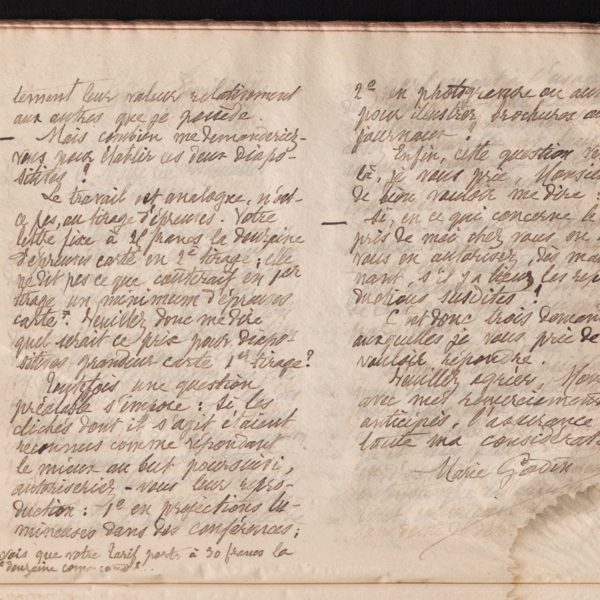 tement leur valeur relativement
aux autres que je possède.
Mais combien me demanderiez-
vous pour établir ces deux diapo-
sitives ?
Le travail est analogue, n'est-
ce pas, au tirage d'épreuves. Votre
lettre fixe à 25 francs la douzaine
d'épreuves carte en 2e tirage ; elle
ne dit pas ce que coûterait en 1er
tirage un minimum d'épreuves
carte. Veuillez donc me dire
quel serait ce prix pour diapo-
sitives grandeur carte 1er tirage ?
Toutefois une question
préalable s'impose : Si, les
clichés dont il s'agit étaient
reconnus comme répondant
le mieux au but poursuivi,
autoriseriez-vous leur repro-
duction : 1e en projections lu-
mineuses dans des conférences ;
vois que votre tarif porte à 30 francs la
douzaine
2e en photogravure ou
pour illustrer brochures ou
journaux
Enfin, cette question
là, je vous prie, Monsieur
de bien vouloir me dire :
Si, en ce qui concerne le
près de moi chez vous ou
vous en autorisez, dès
nant, s'il y a lieu, les
ductions susdites ?
C'est donc trois
auxquelles je vous prie de
vouloir répondre.
Veuillez agréer,
avec mes remerciements
anticipés, l'assurance
toute ma
Marie Godin